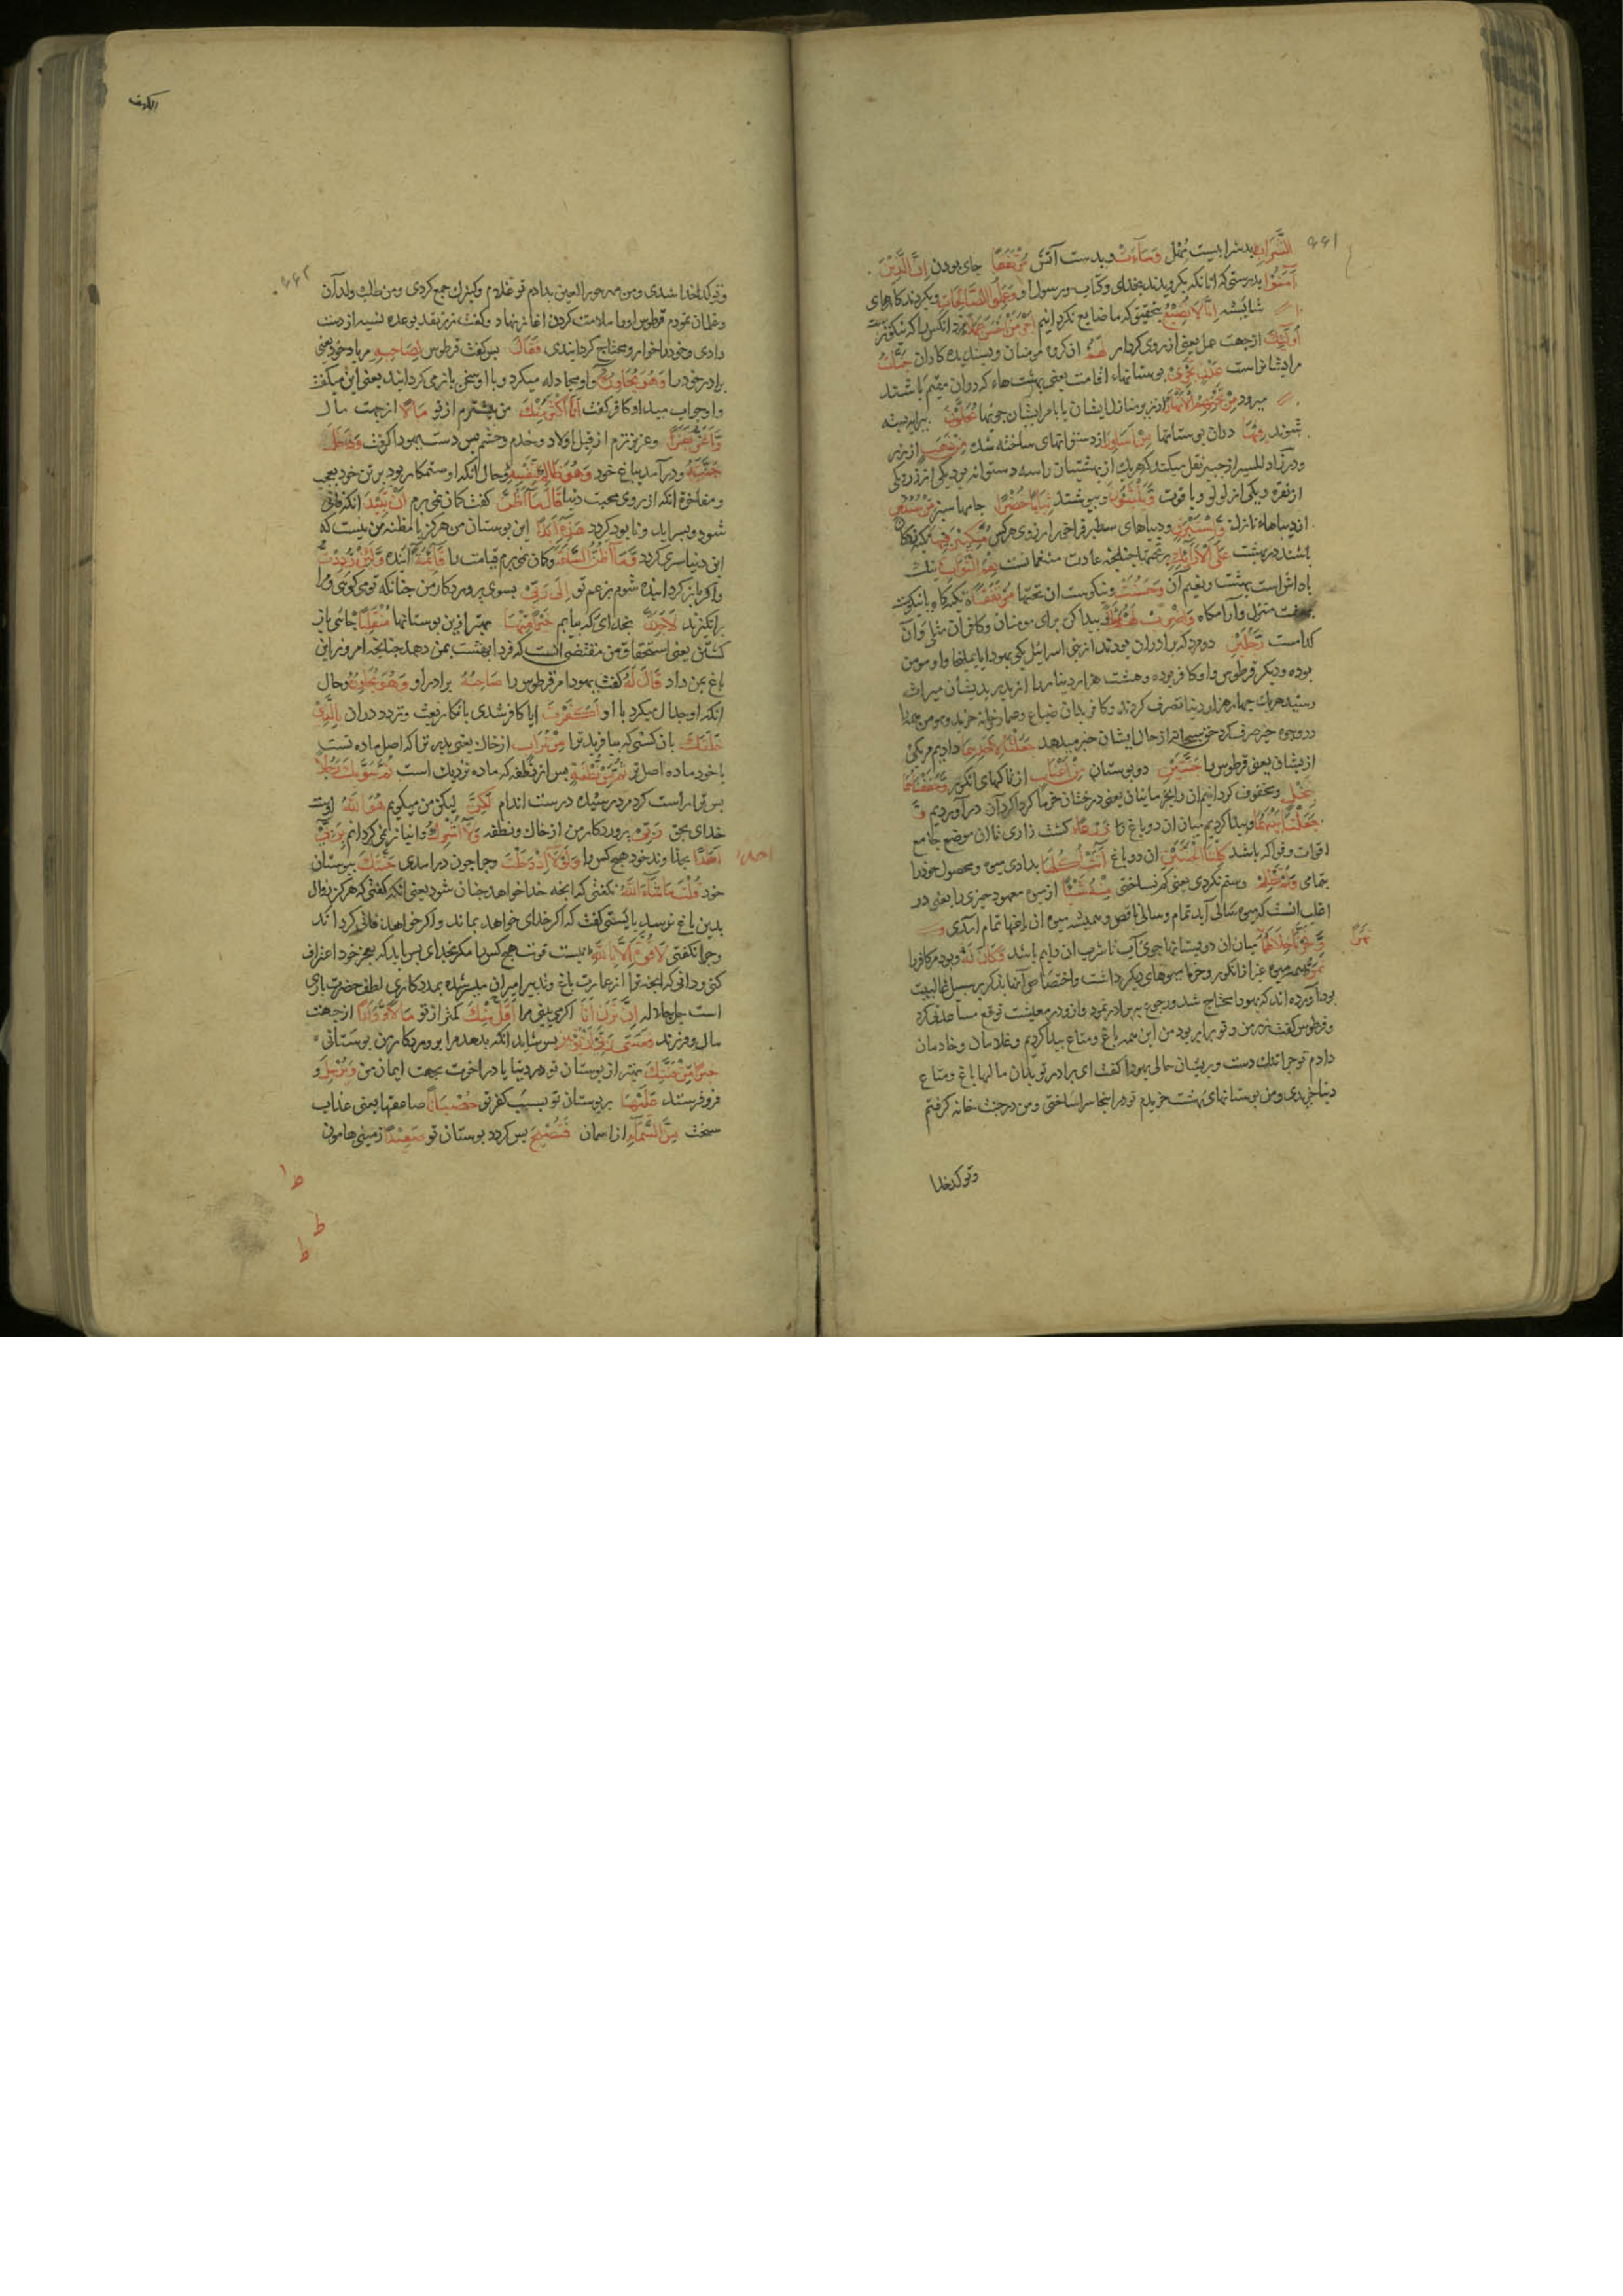 ۶۶۱
الشَّرَابُ بد شرابیست مُهل وَسَآءَتْ و بدست آتش مُرْتَفَقًا جای بودن اِنَّ الَّذِیْنَ
آمَنُوْا بدرستی که انانکه بکرویدند بخدای و کتاب و رسول او وَعَمِلُوا الصَّالِحَاتِ و بکردند کارهای
شایسته اِنَّا لَا نُضِیْعُ بتحقیق که ما ضایع نکردانیم اَجْرَ مَنْ اَحْسَنَ عَمَلًا مزد انکس را که نیکوتر
اُولٰئِكَ ازجهت عمل یعنی از روی کردار لَهُمْ ان کروه مومنان و پسندیده کاران جَنّٰتُ
مرایشانراست عَدْنٍ تَجْرِیْ بوستانهاء اقامت یعنی بهشت هاء که دران مقیم باشند
میرود مِنْ تَحْتِهِمُ الْاَنْهٰرُ از زیر منازل ایشان یا بامر ایشان جویها یُحَلَّوْنَ پیرایه بسته
شوند فِیْهَا دران بوستانها مِنْ اَسَاوِرَ از دستوانهای ساخته شده مِنْ ذَهَبٍ از زر
ودر زاد المسیر از جبیر نقل میکند که هریك از بهشتیان را سه دستوانه بود یکی از زر و یکی
از نقره و یکی از لولو و یاقوت وَّیَلْبَسُوْنَ و بپوشند ثِیَابًا خُضْرًا جامها سبز مِّنْ سُنْدُسٍ
از دیباهاء نازك وَّاِسْتَبْرَقٍ و دیباهای سطبر مُّتَّكِئِیْنَ فِیْهَا تکیه زدکان
باشند در بهشت عَلَی الْاَرَآئِكِ بر تختها چنانچه عادت متنعمانست نِعْمَ الثَّوَابُ نیك
پاداش است بهشت و نعیم آن وَحَسُنَتْ و نیکوست ان تختها مُرْتَفَقًا تکیه کاه یا نیکوست
بهشت منزل و آرامکاه وَاضْرِبْ لَهُمْ مَّثَلًا و پیدا کن برای مومنان و کافران مثلی و آن
کدامست رَّجُلَیْنِ دو مرد که برادران بودند از بنی اسرائیل یکی یهودا یا یملیخا و او مومن
بوده و دیکر قرطوس و او کافر بوده و هشت هزار دینار را از پدر بدیشان میراث
رسید هریك چهار هزار دینار تصرف کردند و کافر بدان ضیاع و عقار خریده و مومن همه را
در وجوه خیر صرف کرد حق سبحانه از حال ایشان خبر میدهد جَعَلْنَا لِاَحَدِهِمَا دادیم مریکی
ازیشان یعنی قرطوس را جَنَّتَیْنِ دو بوستان مِنْ اَعْنَابٍ از تاکهای انکور وَّحَفَفْنٰهُمَا
بِنَخْلٍ و محفوف کردانیم ان را بخرما بنان یعنی درختان خرما کرداکرد آن درآوردیم وَّ
جَعَلْنَا بَیْنَهُمَا و پیدا کردیم میان ان دو باغ را زَرْعًا کشت زاری تا ان موضع جامع
اقوات و فواکه باشد كِلْتَا الْجَنَّتَیْنِ ان دو باغ اٰتَتْ اُكُلَهَا بدادی میوه و محصول خود را
بتمامی وَلَمْ تَظْلِمْ و ستم نکردی یعنی کم نساختی مِنْهُ شَیْئًا از میوه معهود چیزی را یعنی در
اغلب انست که میوه سالی آید تمام و سالی ناقص و همیشه میوه ان باغها تمام آمدی
وَّفَجَّرْنَا خِلٰلَهُمَا میان ان دو بستانها جوی آب تا شرب ان دایم باشد وَّكَانَ لَهٗ و بود مر کافر را
ثَمَرٌ همه میوه غیر از انکور و خرما میوهای دیکر داشت و اختصاص آنها بذکر بر سبیل غالبیت
بود آورده اند که یهودا محتاج شد و رجوع به برادر نمود و از و در معیشت توقع مساعدتی کرد
و قرطوس کفت زر من و تو برابر بود من این همه باغ و متاع پیدا کردم و غلامان و خادمان
دارم تو چرا تنك دست و پریشان حالی یهودا کفت ای برادر تو بدان مالها باغ و متاع
دنیا خریدی و من بوستانهای بهشت خریدم تو در اینجا سرا ساختی و من در جنت خانه کرفتم
وتو کدخدا
ثَمَرٌ
الکهف
۶۶۲
وتو کدخدا شدی و من مهر حور العین بدادم تو غلام و کنیزك جمع کردی و من طلب ولدان
و غلمان نمودم قرطوس او را ملامت کردن اغاز نهاد و کفت زر نقد بوعده نسیه از دست
دادی و خود را خوار و محتاج کردانیدی فَقَالَ پس کفت قرطوس لِصَاحِبِهٖ مر یار خود یعنی
برادر خود را وَهُوَ یُحَاوِرُهٗ و او مجادله میکرد و با او سخن باز می کردانید یعنی این میکفت
و او جواب میداد و کافر کفت اَنَا اَكْثَرُ مِنْكَ من بیشترم از تو مَالًا از جهت مال
وَّاَعَزُّ نَفَرًا و عزیز ترم از قبل اولاد و خدم و حشم پس دست یهودا کرفت وَدَخَلَ
جَنَّتَهٗ و درآمد بباغ خود وَهُوَ ظَالِمٌ لِّنَفْسِهٖ و حال آنکه او ستمکار بود بر تن خود بعجب
و مفاخرة انکه از روی محبت دنیا قَالَ مَآ اَظُنُّ کفت کمان نمی برم اَنْ تَبِیْدَ انکه فانی
شود و بسر اید و نابود کردد هٰذِهٖٓ اَبَدًا این بوستان من هرکز یا مظنه من نیست که
این دنیا سری کردد وَّمَآ اَظُنُّ السَّاعَةَ و کان نمی برم قیامت را قَآئِمَةً آینده وَّلَئِنْ رُّدِدْتُّ
و اکر باز کردانیده شوم بزعم تو اِلٰی رَبِّیْ بسوی پروردکار من چنانکه تو می کویی و مرا
برانکیزند لَاَجِدَنَّ بخدای که بیابم خَیْرًا مِّنْهَا بهتر ازین بوستانها مُنْقَلَبًا جائی باز
کشتنی یعنی استحقاق من مقتضی انست که فردا بهشت بمن دهد چنانچه امروز این
باغ بمن داد قَالَ لَهٗ کفت یهودا مر قرطوس را صَاحِبُهٗ برادر او وَهُوَ یُحَاوِرُهٗ و حال
انکه او جدال میکرد با او اَكَفَرْتَ ایا کافر شدی بانکار بعث و تردد دران بِالَّذِیْ
خَلَقَكَ بان کسی که بیافرید ترا مِنْ تُرَابٍ از خاك یعنی پدر ترا که اصل ماده تست
یا خود ماده اصل تو ثُمَّ مِنْ نُّطْفَةٍ پس از نطفه که ماده نزدیك است ثُمَّ سَوّٰىكَ رَجُلًا
پس ترا راست کرد مرد رسیده درست اندام لٰكِنَّا لیکن من میکویم هُوَ اللّٰهُ اوست
خدای بحق رَبِّیْ پروردکار من از خاك و نطفه وَلَآ اُشْرِكُ و انباز نمی کردانم بِرَبِّیْٓ
اَحَدًا بخداوند خود هیچ کس را وَلَوْلَآ اِذْ دَخَلْتَ و چرا چون درامدی جَنَّتَكَ ببوستان
خود قُلْتَ مَا شَآءَ اللّٰهُ نکفتی که انچه خدا خواهد چنان شود یعنی انکه کفتی که هرکز زوال
بدین باغ نرسد بایستی کفت که اکر خدای خواهد بماند و اکر خواهد فانی کرداند
و چرا نکفتی لَا قُوَّةَ اِلَّا بِاللّٰهِ نیست قوت هیچ کس را مکر بخدای پس باید که بعجز خود اعتراف
کنی و دانی که انچه ترا از عمارت باغ و تدبیر امر آن میسر شده بمددکاری لطف حضرت باری
است جل جلاله اِنْ تَرَنِ اَنَا اکر می بینی مرا اَقَلَّ مِنْكَ کمتر از تو مَالًا وَّوَلَدًا از جهت
مال و فرزند فَعَسٰی رَبِّیْٓ اَنْ یُّؤْتِیَنِ پس شاید انکه بدهد مرا پروردکار من بوستانی
خَیْرًا مِّنْ جَنَّتِكَ بهتر از بوستان تو در دنیا یا در اخرت بجهت ایمان من وَیُرْسِلَ و
فرو فرستد عَلَیْهَا بر بوستان تو بسبب کفر تو حُسْبَانًا صاعقها یعنی عذاب
سخت مِّنَ السَّمَآءِ از اسمان فَتُصْبِحَ پس کردد بوستان تو صَعِیْدًا زمینی هامون
احدا
ط
ط
ط